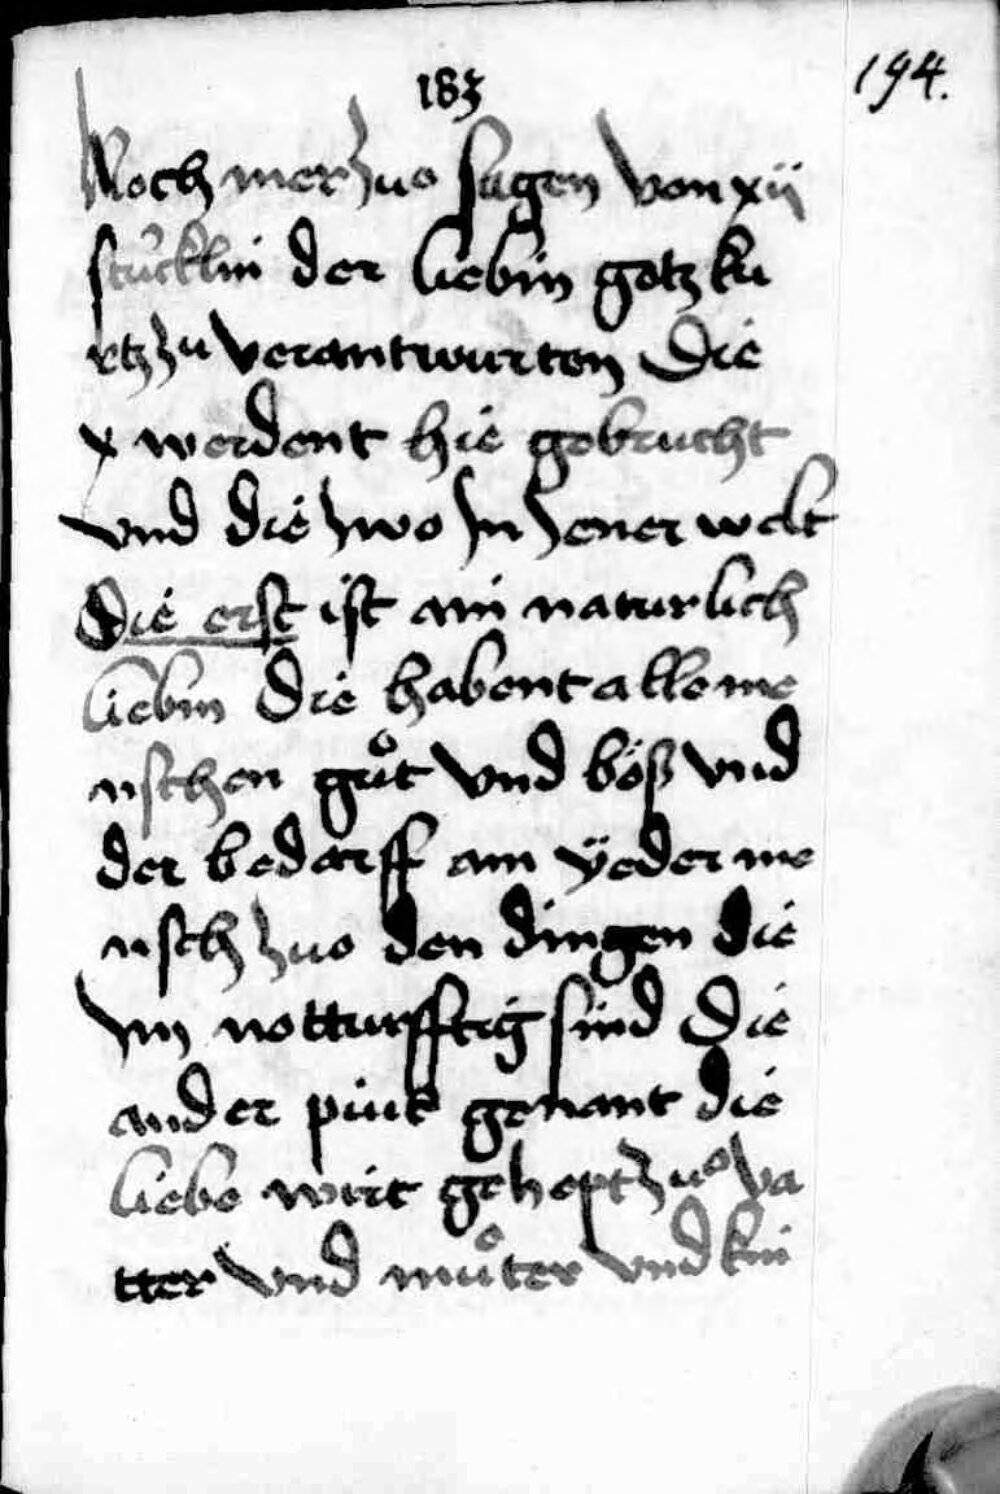 183
194.
Noch mer zuo sagen von xij
stücklin der liebin gotz ku
rtz zu verantwurten Die
x werdent hie gebrucht
vnd die zwo jn jener welt
Die erst ist ain naturlich
liebin Die habent alle me
nschen guͦt vnd böß vnd
der bedarff ain ÿeder me
nsch zuo den dingen die
jm notturfftig sind Die
ander genant die
liebe wirt gehept zuͦ va
tter vnd muͦter vnd kin